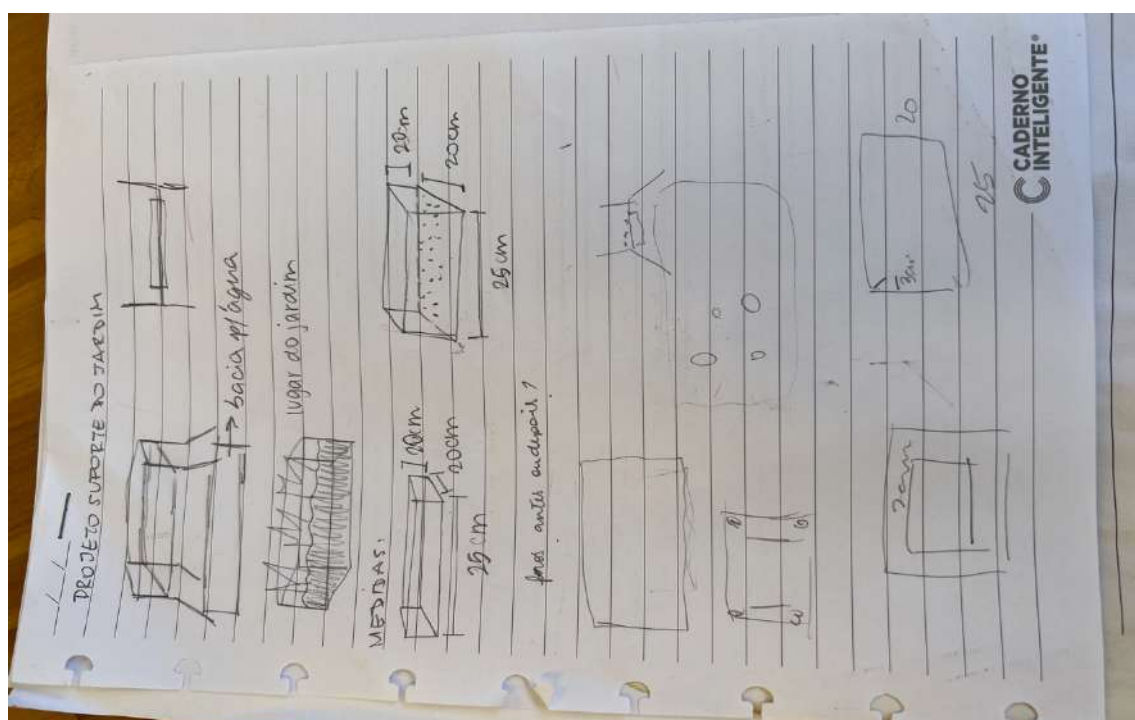 PROJETO SUPORTE DO JARDIM
bacia p/ água
lugar do jardim
MEDIDAS:
20cm
20cm
25cm
20cm
20cm
25cm
furos antes ou depois?
2cm
3cm
20
25
CADERNO
INTELIGENTE®